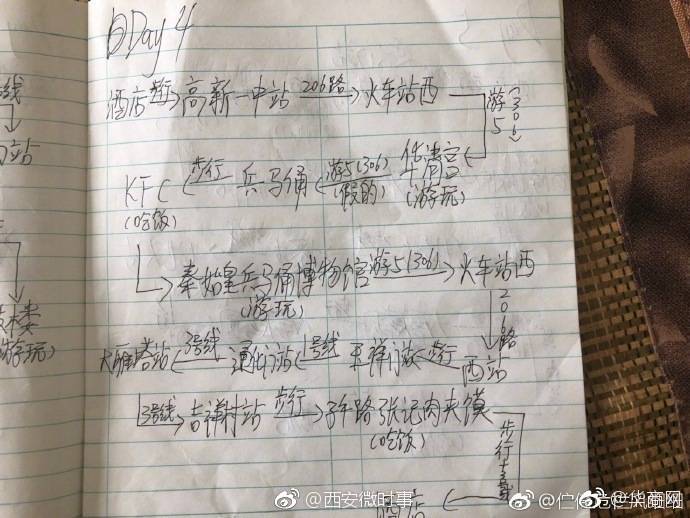 Day 4
线
酒店 步行 高新一中站 206路 火车站西
游5(306)
站
KFC 步行 兵马俑 游5(306) 华清宫
(吃饭) (假的) (游玩)
秦始皇兵马俑博物馆 游5(306) 火车站西
(游玩)
206路
楼
游玩)
大雁塔站 3号线 通化门站 1号线 步行 西站
3号线 吉祥村站 步行 子午路张记肉夹馍
(吃饭)
步行
@西安微时事
@华商网